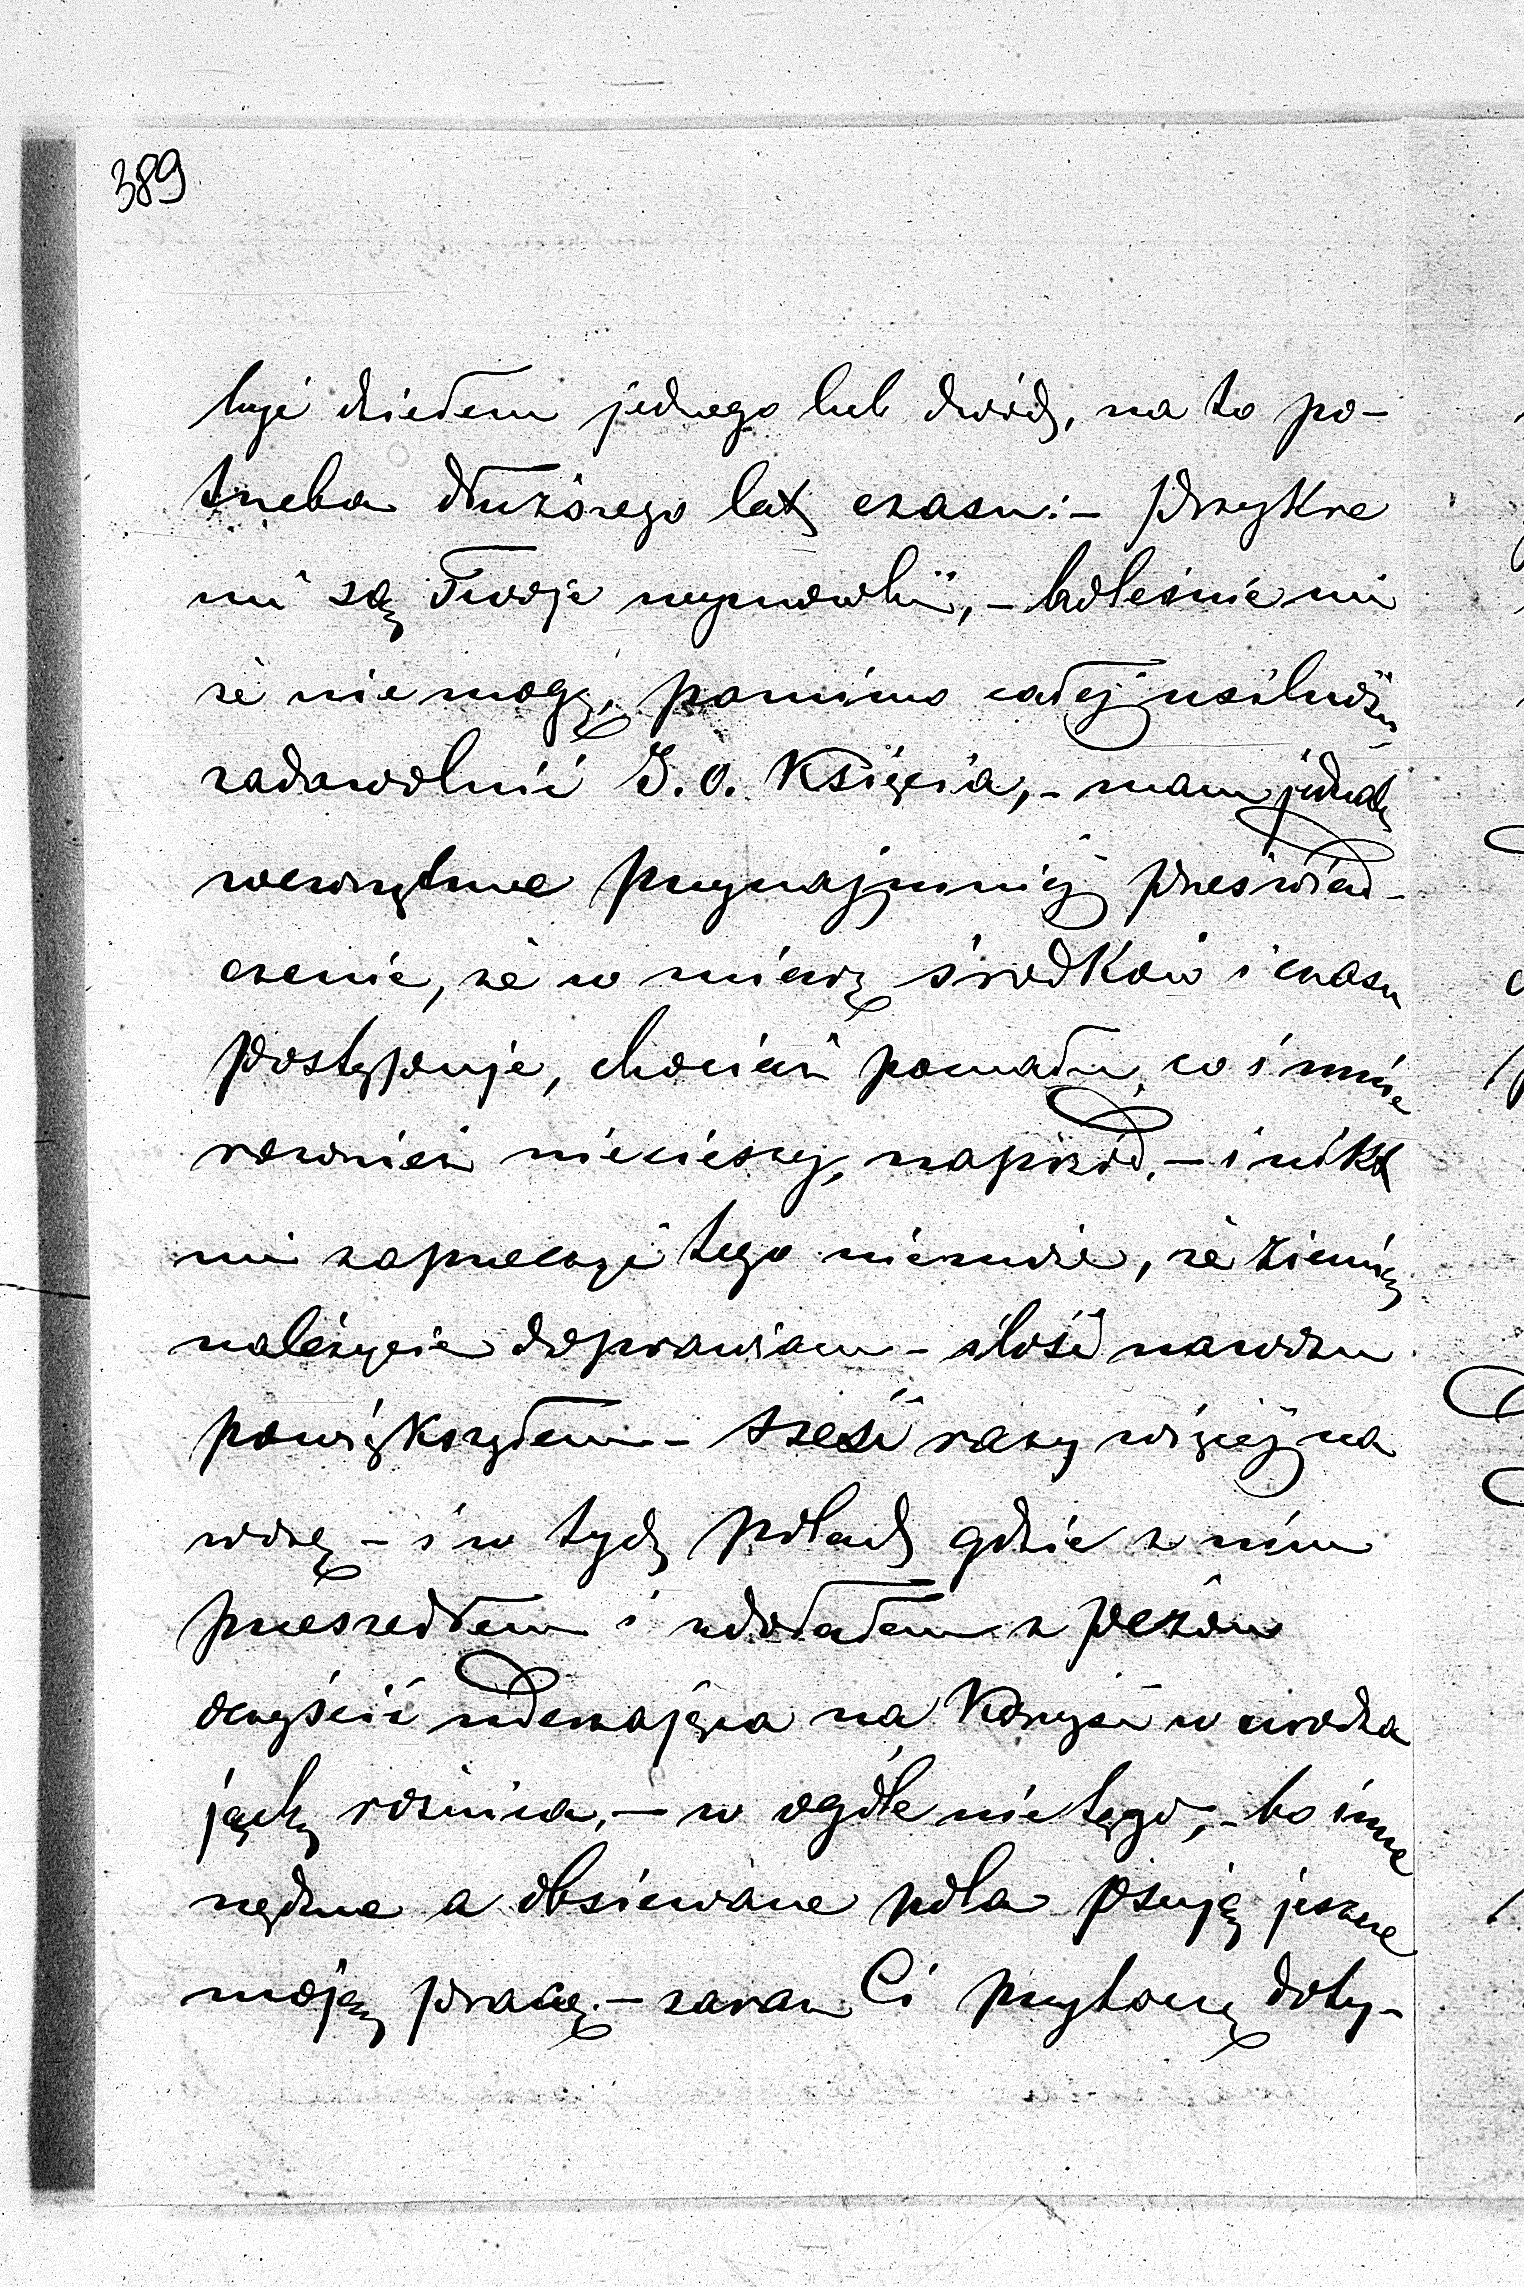 389
być dziełem jednego lub dwóch, na to po-
trzeba dłuższego lat czasu: – przykre
mi są Twoje wymówki, – boleśnie mi
że niemogę, pomimo całej usilności
zadowolnić J. O. Księcia, – mam jednak
wewnętrzne przynajmniej przeświad-
czenie, że w miarę środków i czasu
postępuje, chociaż pomału, co i mnie
rownież niecieszy, naprzód, – i nikt
mi zaprzeczyć tego niemoże, że ziemię
należycie doprawiam – ilość nawozu
powiększyłem – sześć razy więcej na
wożę – i w tych polach gdzie z nim
przeszedłem i zdołałem z perzów
oczyścić uderzająca na Korzyść w urodza
jach różnica, – w ogóle nie tęgo, – bo inne
nędzne a obsiewane pola psują jeszcze
moją pracę. – zaraz Ci przytoczę doty-